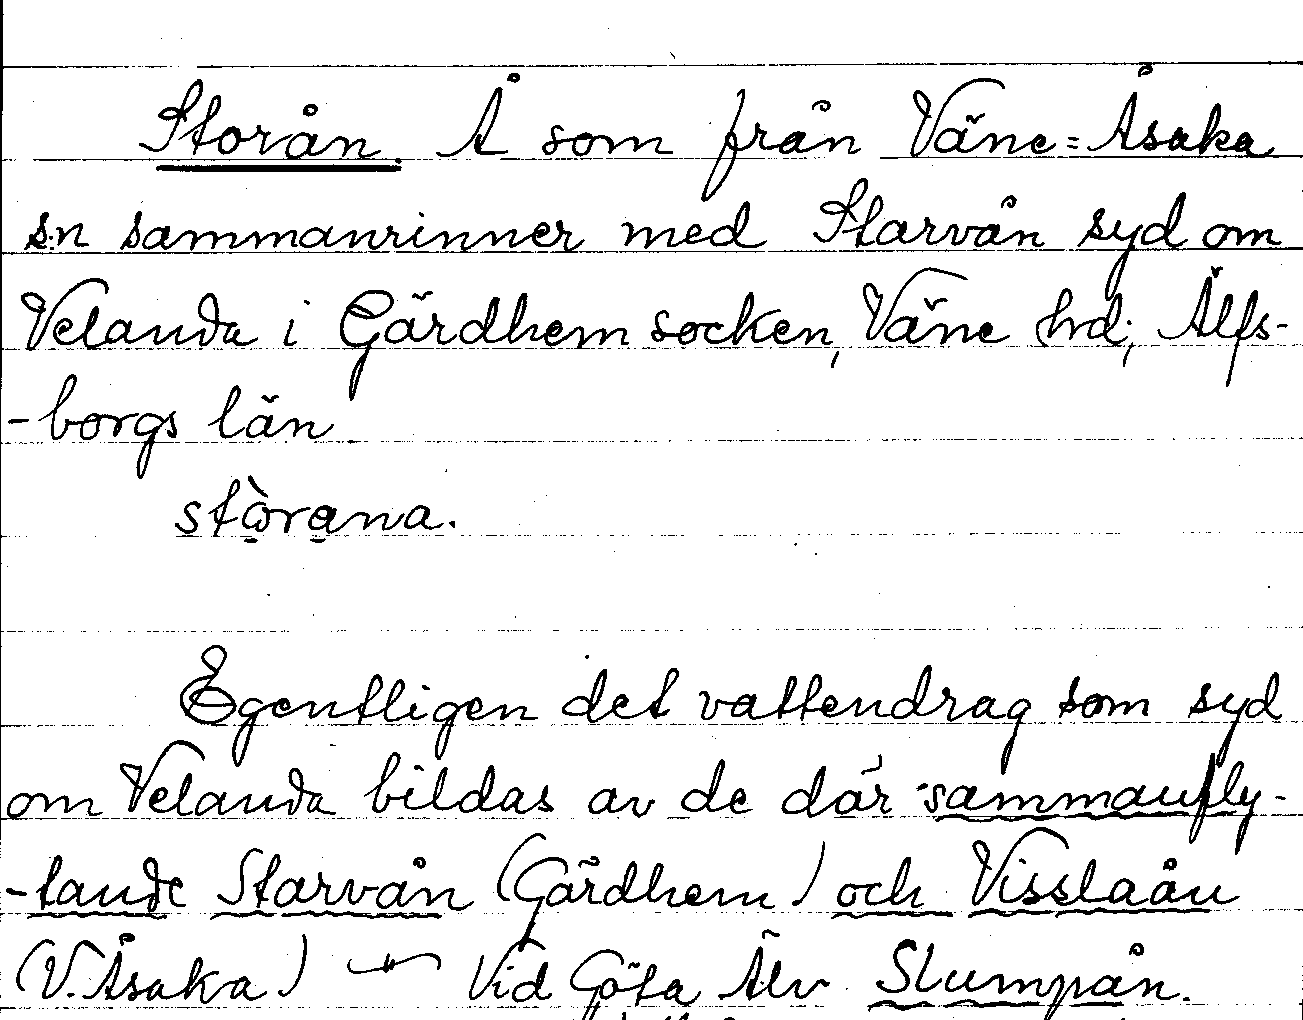 Storån. Å som från Väne=Åsaka
s:n sammanrinner med Starvån syd om
Velanda i Gärdhem socken, Väne hd; Älfs-
-borgs län
stòrana.
Egentligen det vattendrag som syd
om Velanda bildas av de där sammanfly-
-tande Starvån (Gärdhem) och Visslaån
(V. Åsaka) Vid Göta Älv Slumpån.